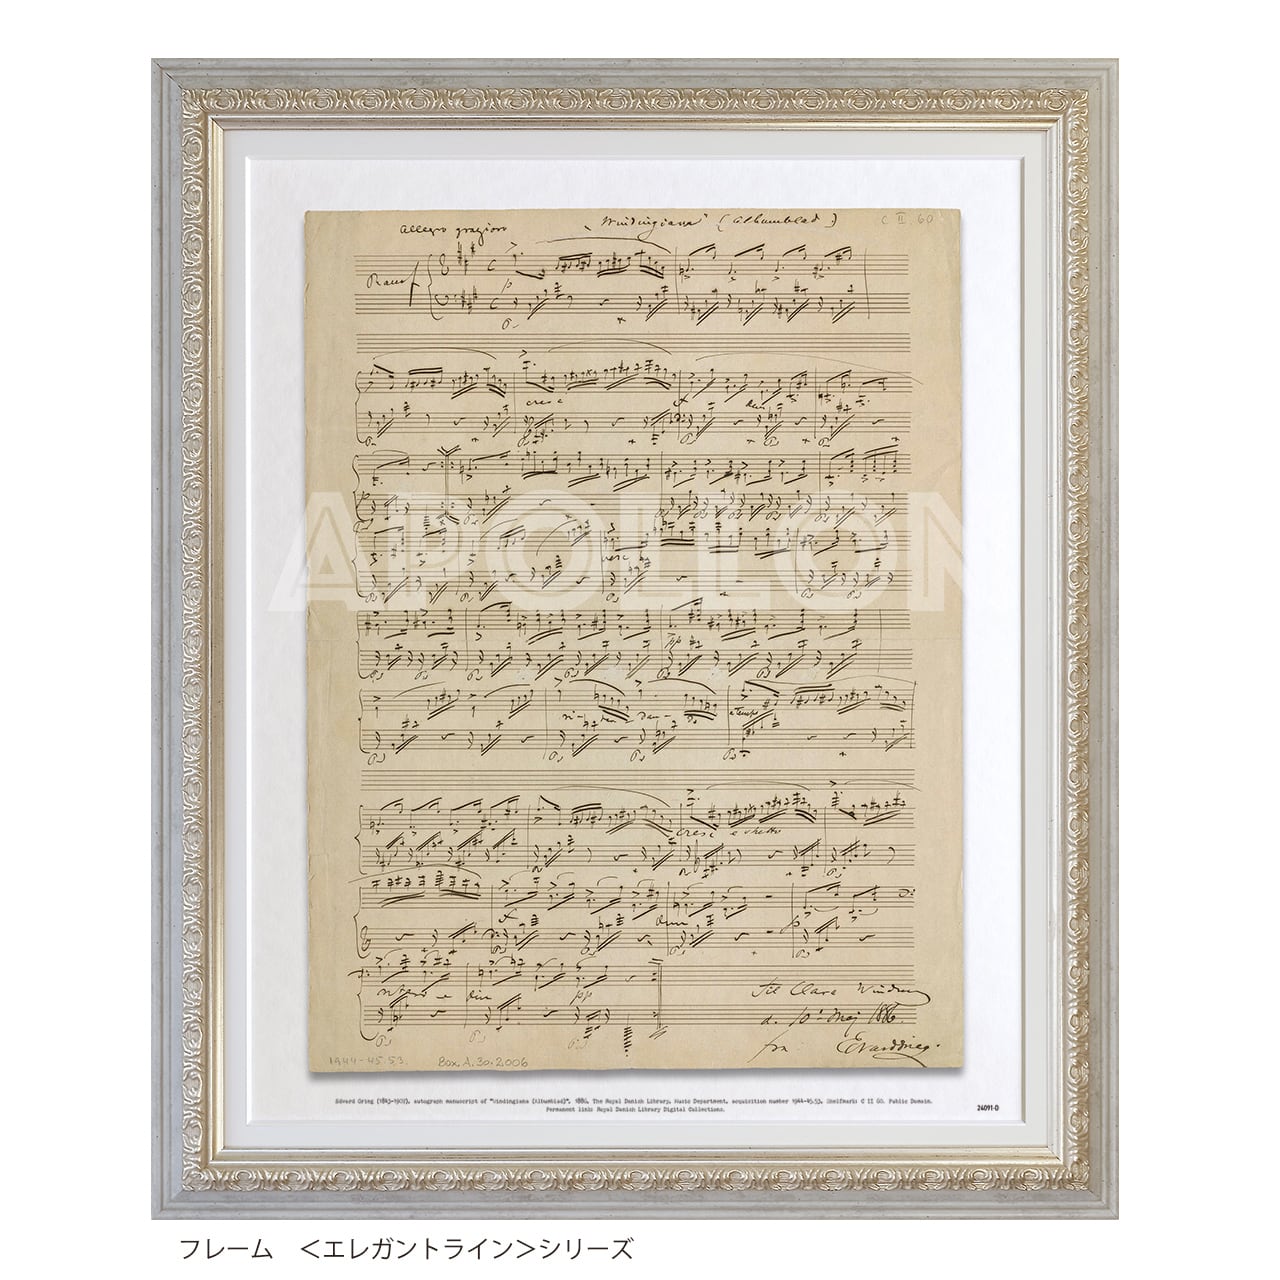 Allegro grazioso "Windingiana" (Albumblad.) C II, 60
p
cresc dim
p
cresc
pp
a tempo
cresc e stretto
f dim p
dim pp
Til Clara Winding
d. 10' Maj 1886.
fra Edvard Grieg.
1944-45.53. Box A. 30. 2006
APOLLON
Edvard Grieg (1843-1907), autograph manuscript of "Windingiana (Albumblad)", 1886, The Royal Danish Library, Music Department, acquisition number 1944-45.53, Shelfmark: C II 60. Public Domain.
Permanent link: Royal Danish Library Digital Collections.
24091-D
フレーム <エレガントライン>シリーズ